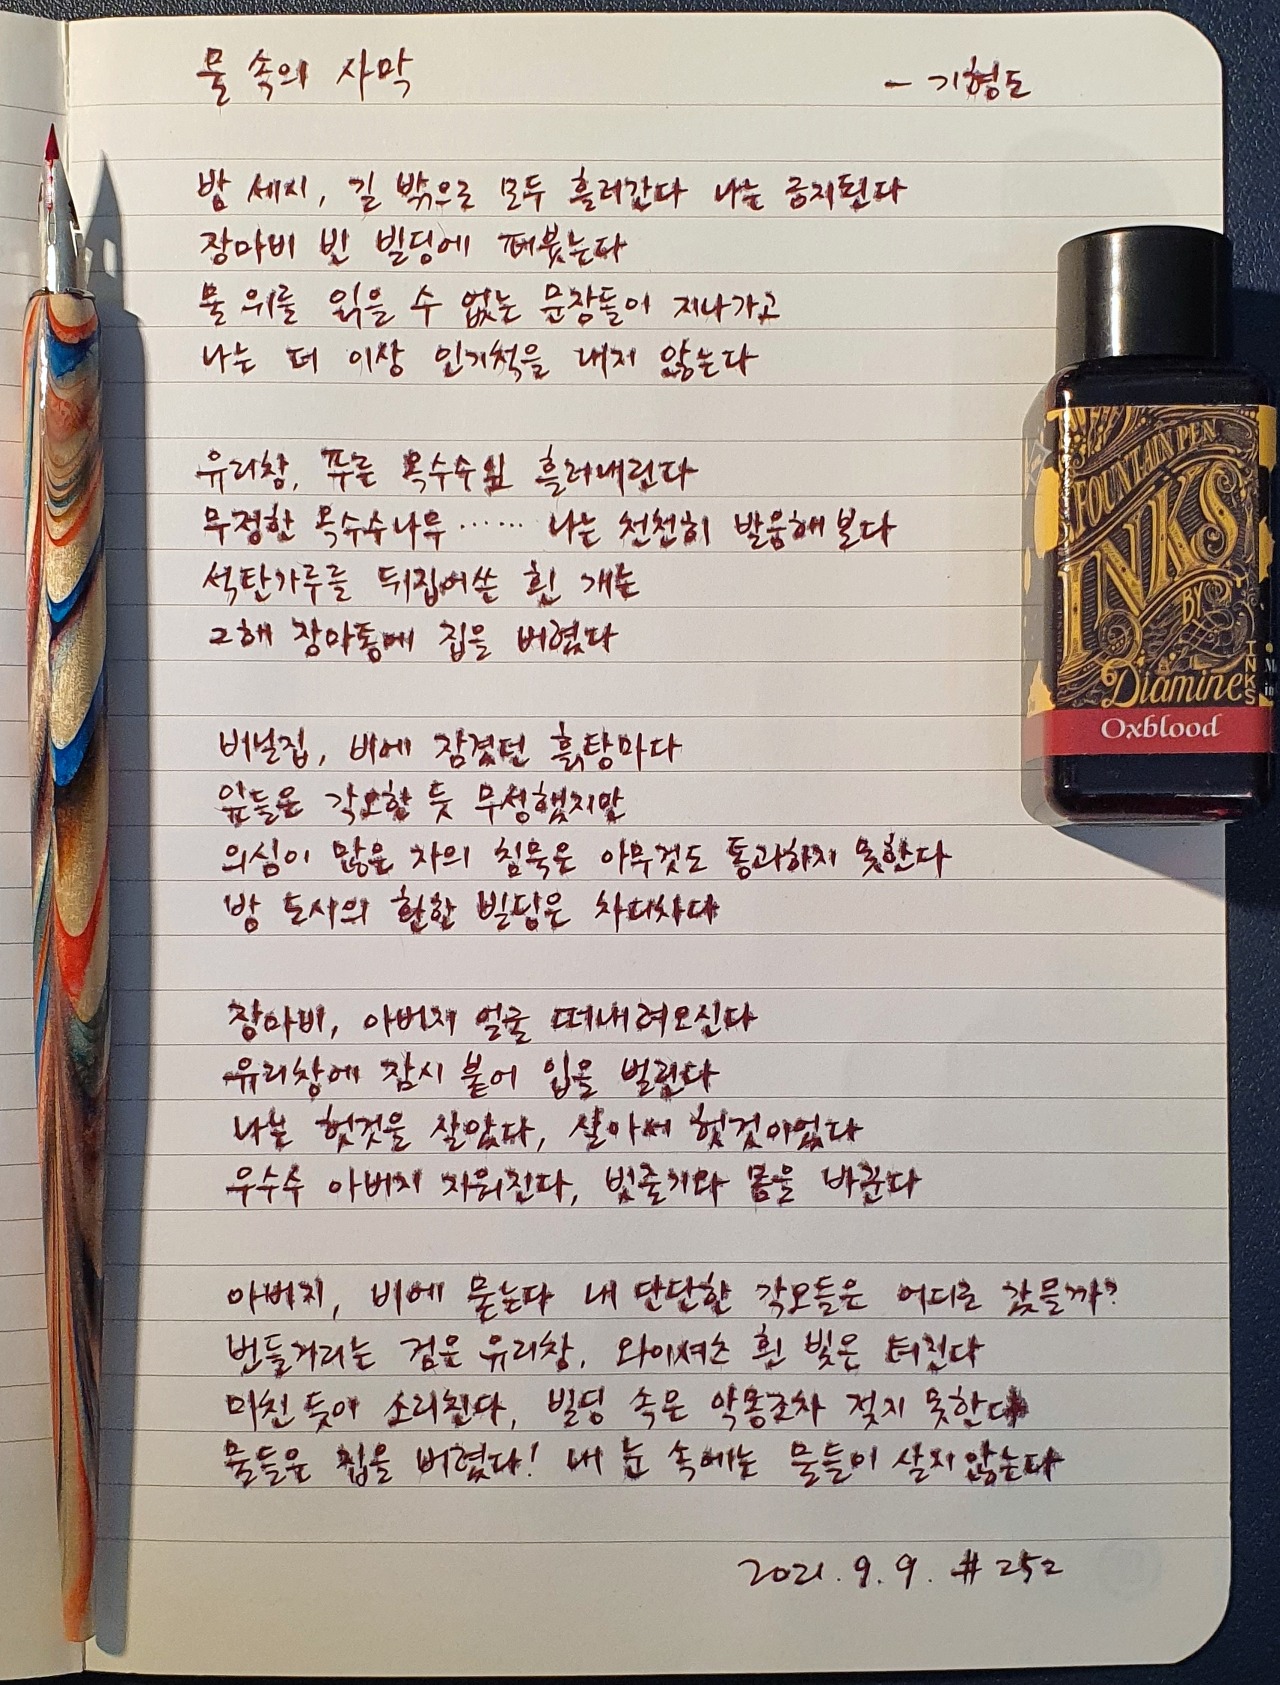 물 속의 사막
- 기형도
밤 세시, 길 밖으로 모두 흘러간다 나는 금지된다
장마비 빈 빌딩에 퍼붓는다
물 위를 읽을 수 없는 문장들이 지나가고
나는 더 이상 인기척을 내지 않는다
유리창, 푸른 옥수수잎 흘러내린다
무정한 옥수수나무 ······ 나는 천천히 발음해 본다
석탄가루를 뒤집어쓴 흰 개는
그해 장마통에 집을 버렸다
비닐집, 비에 잠겼던 흙탕마다
잎들은 각오한 듯 무성했지만
의심이 많은 자의 침묵은 아무것도 통과하지 못한다
밤 도시의 환한 빌딩은 차디차다
장마비, 아버지 얼굴 떠내려오신다
유리창에 잠시 붙어 입을 벌린다
나는 헛것을 살았다, 살아서 헛것이었다
우수수 아버지 지워진다, 빗줄기와 몸을 바꾼다
아버지, 비에 묻는다 내 단단한 각오들은 어디로 갔을까?
번들거리는 검은 유리창, 와이셔츠 흰 빛은 터진다
미친 듯이 소리친다, 빌딩 속은 악몽조차 젖지 못한다
물들은 집을 버렸다! 내 눈 속에는 물들이 살지 않는다
2021. 9. 9. # 252
FOUNTAIN PEN
INKS
BY
Diamine
INKS
Oxblood